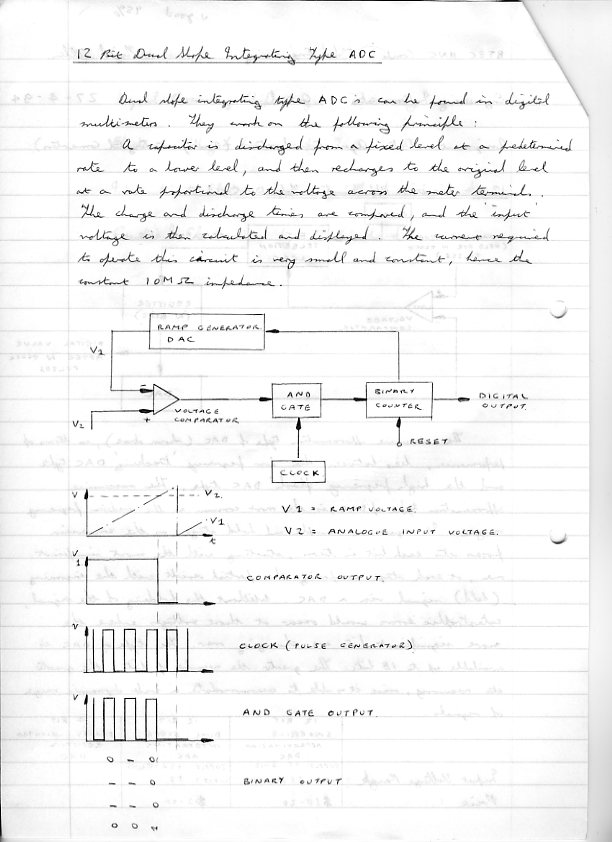 12 Bit Dual Slope Integrating Type ADC
Dual slope integrating type ADC's can be found in digital
multimeters. They work on the following principle:
A capacitor is discharged from a fixed level at a pedetermined
rate to a lower level, and then recharges to the original level
at a rate poportional to the voltage across the meter terminals.
The charge and discharge times are compared, and the input
voltage is then calculated and displayed. The current required
to operate this circuit is very small and constant, hence the
constant 10MΩ impedance.
RAMP GENERATOR
DAC
V2
-
V2
+
VOLTAGE
COMPARATOR
AND
GATE
BINARY
COUNTER
DIGITAL
OUTPUT.
RESET
CLOCK
V
V2.
V1
t
V1 = RAMP VOLTAGE.
V2 = ANALOGUE INPUT VOLTAGE.
V
1
COMPARATOR OUTPUT.
V
CLOCK (PULSE GENERATOR)
V
AND GATE OUTPUT.
BINARY OUTPUT